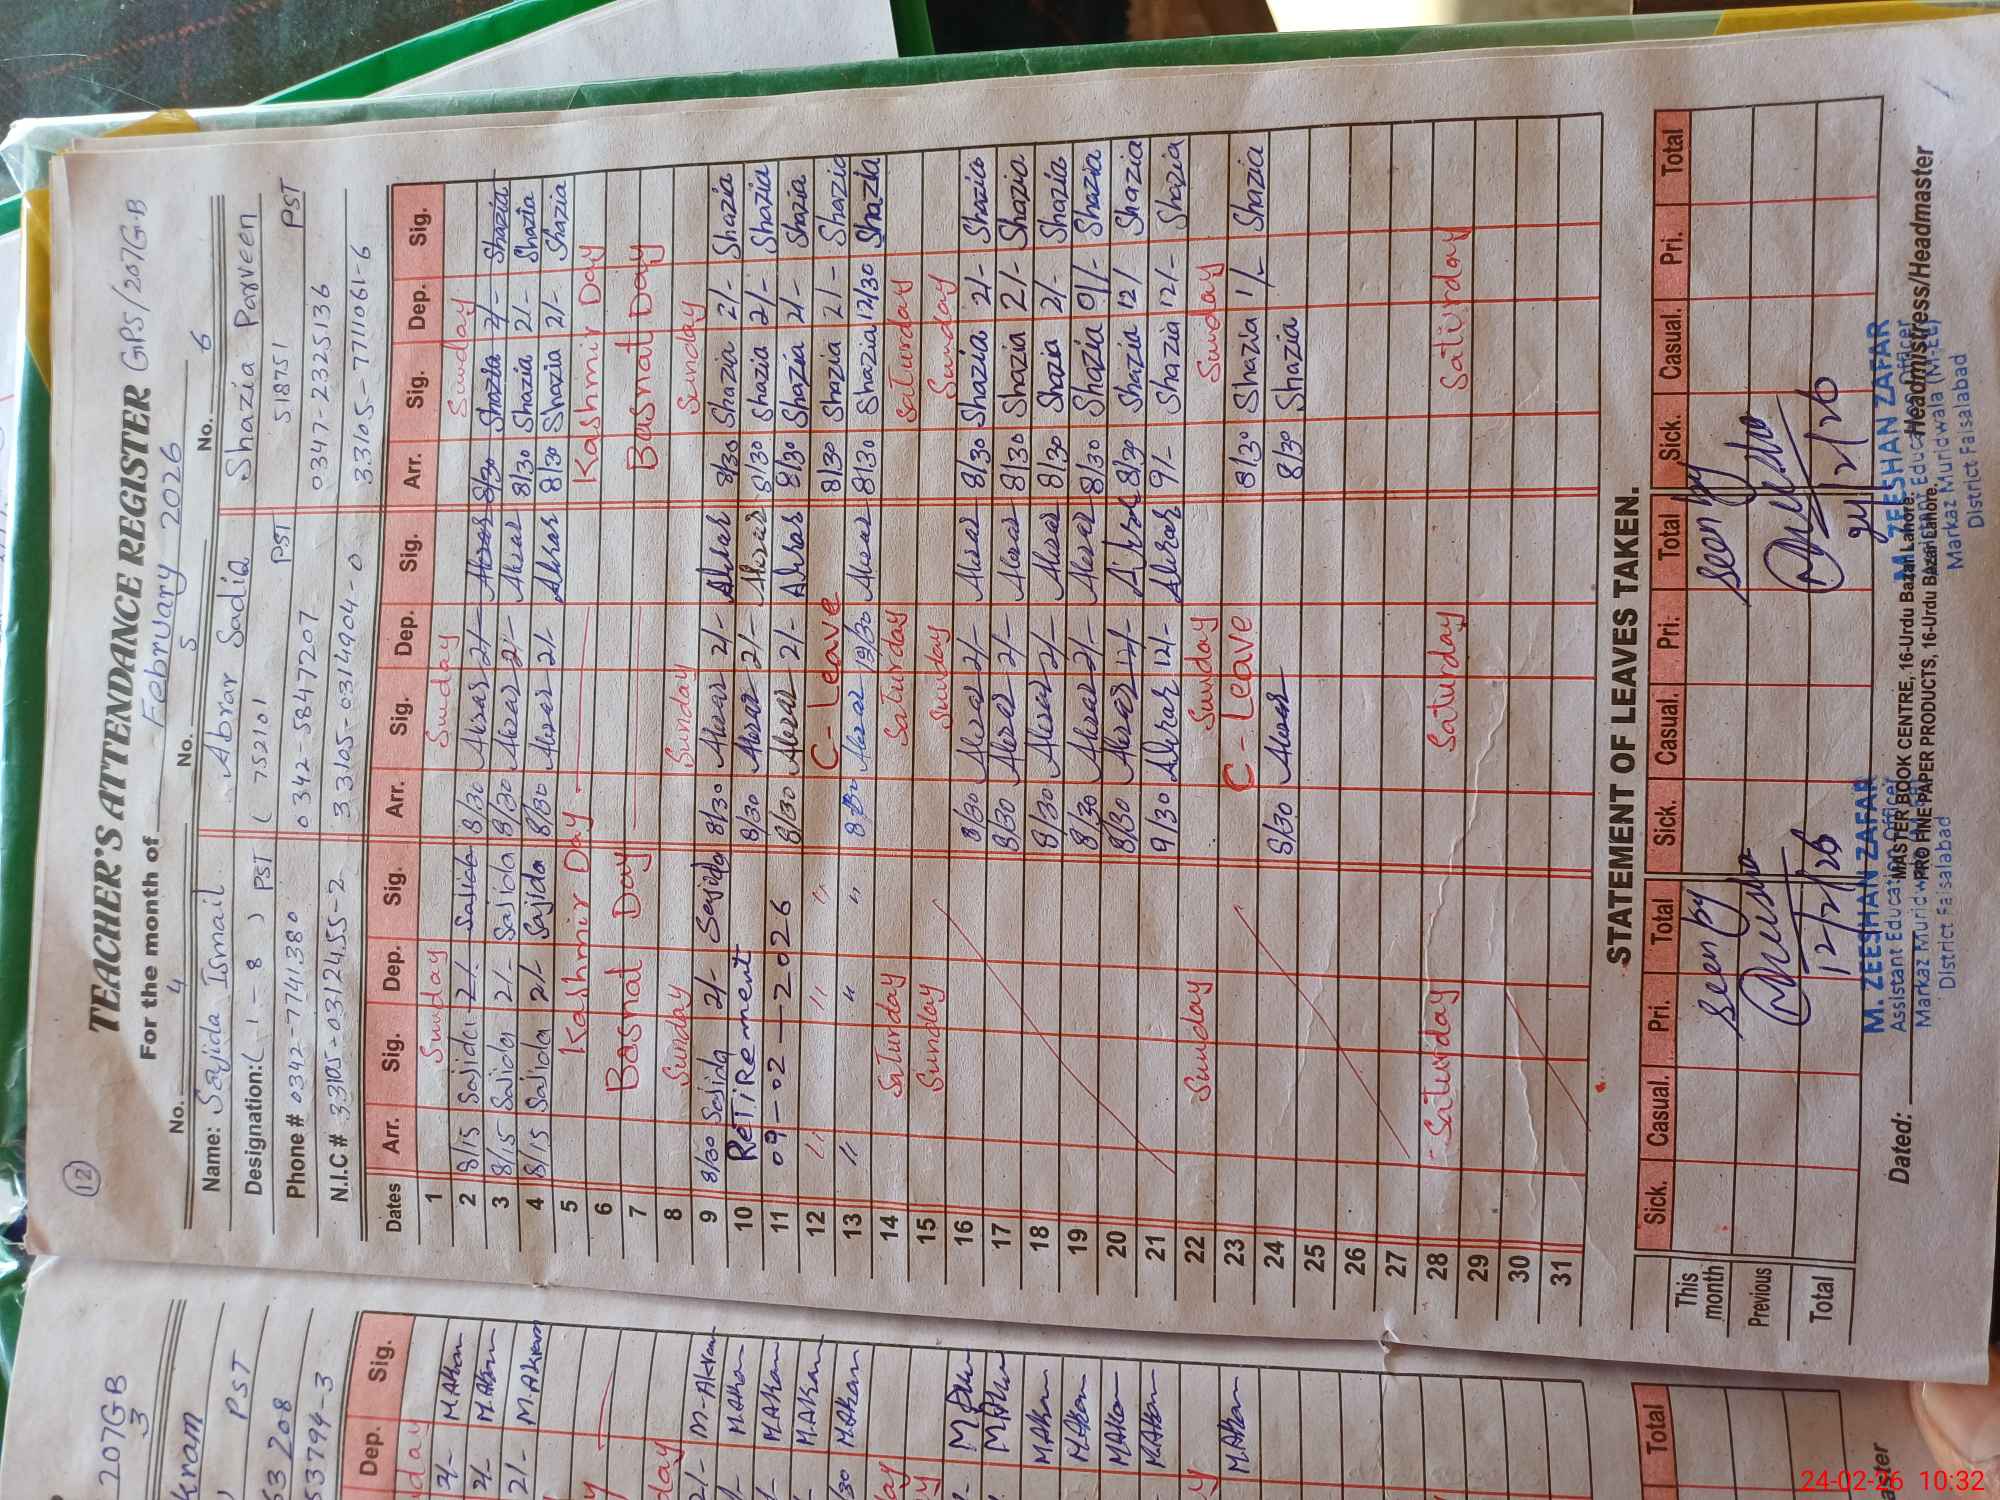 12
TEACHER'S ATTENDANCE REGISTER GPS/207G.B
For the month of February 2026
No. 4 No. 5 No. 6
Name: Sajida Ismail Abrar Sadia Shazia Parveen
Designation: ( 1-8 ) PST ( 752101 PST 518751 PST
Phone # 0342-7741380 0342-5847207 0347-2325136
N.I.C # 33105-0312455-2 33105-0314904-0 33105-7711061-6
Dates Arr. Sig. Dep. Sig. Arr. Sig. Dep. Sig. Arr. Sig. Dep. Sig.
1 Sunday Sunday Sunday
2 8/15 Sajida 2/- Sajida 8/30 Abrar 2/- Abrar 8/30 Shazia 2/- Shazia
3 8/15 Sajida 2/- Sajida 8/30 Abrar 2/- Abrar 8/30 Shazia 2/- Shazia
4 8/15 Sajida 2/- Sajida 8/30 Abrar 2/- Abrar 8/30 Shazia 2/- Shazia
5 Kashmir Day Kashmir Day
6
7 Basnat Day Basnat Day
8 Sunday Sunday Sunday
9 8/30 Sajida 2/- Sajida 8/30 Abrar 2/- Abrar 8/30 Shazia 2/- Shazia
10 ReTiRement 8/30 Abrar 2/- Abrar 8/30 Shazia 2/- Shazia
11 09-02-2026 8/30 Abrar 2/- Abrar 8/30 Shazia 2/- Shazia
12 " " " C-Leave 8/30 Shazia 2/- Shazia
13 " " " 8/30 Abrar 12/30 Abrar 8/30 Shazia 12/30 Shazia
14 Saturday Saturday Saturday
15 Sunday Sunday Sunday
16 8/30 Abrar 2/- Abrar 8/30 Shazia 2/- Shazia
17 8/30 Abrar 2/- Abrar 8/30 Shazia 2/- Shazia
18 8/30 Abrar 2/- Abrar 8/30 Shazia 2/- Shazia
19 8/30 Abrar 2/- Abrar 8/30 Shazia 01/- Shazia
20 8/30 Abrar 12/- Abrar 8/30 Shazia 12/- Shazia
21 9/30 Abrar 12/- Abrar 9/- Shazia 12/- Shazia
22 Sunday Sunday Sunday
23 C-Leave 8/30 Shazia 1/- Shazia
24 8/30 Abrar 8/30 Shazia
25
26
27
28 Saturday Saturday Saturday
29
30
31
STATEMENT OF LEAVES TAKEN.
Sick. Casual. Pri. Total Sick. Casual. Pri. Total Sick. Casual. Pri. Total
This month
Previous
Total
Seen by
12/2/26
Seen by
24/2/26
M. ZEESHAN ZAFAR
Assistant Education Officer
Markaz Muridwala (M-EE)
District Faisalabad
M. ZEESHAN ZAFAR
Assistant Education Officer
Markaz Muridwala (M-EE)
District Faisalabad
MASTER BOOK CENTRE, 16-Urdu Bazar Lahore.
PRO FINE PAPER PRODUCTS, 16-Urdu Bazar Lahore.
Dated: Headmistress/Headmaster
207GB
3
kram
PST
63208
53794-3
Dep. Sig.
day
2/- M.Akram
2/- M.Akram
2/- M.Akram
day
2/- M-Akram
M.Akram
M.Akram
M.Akram
/30 M.Akram
M.Akram
M.Akram
M.Akram
M.Akram
M.Akram
M.Akram
M.Akram
Total
aster
24-02-26 10:32